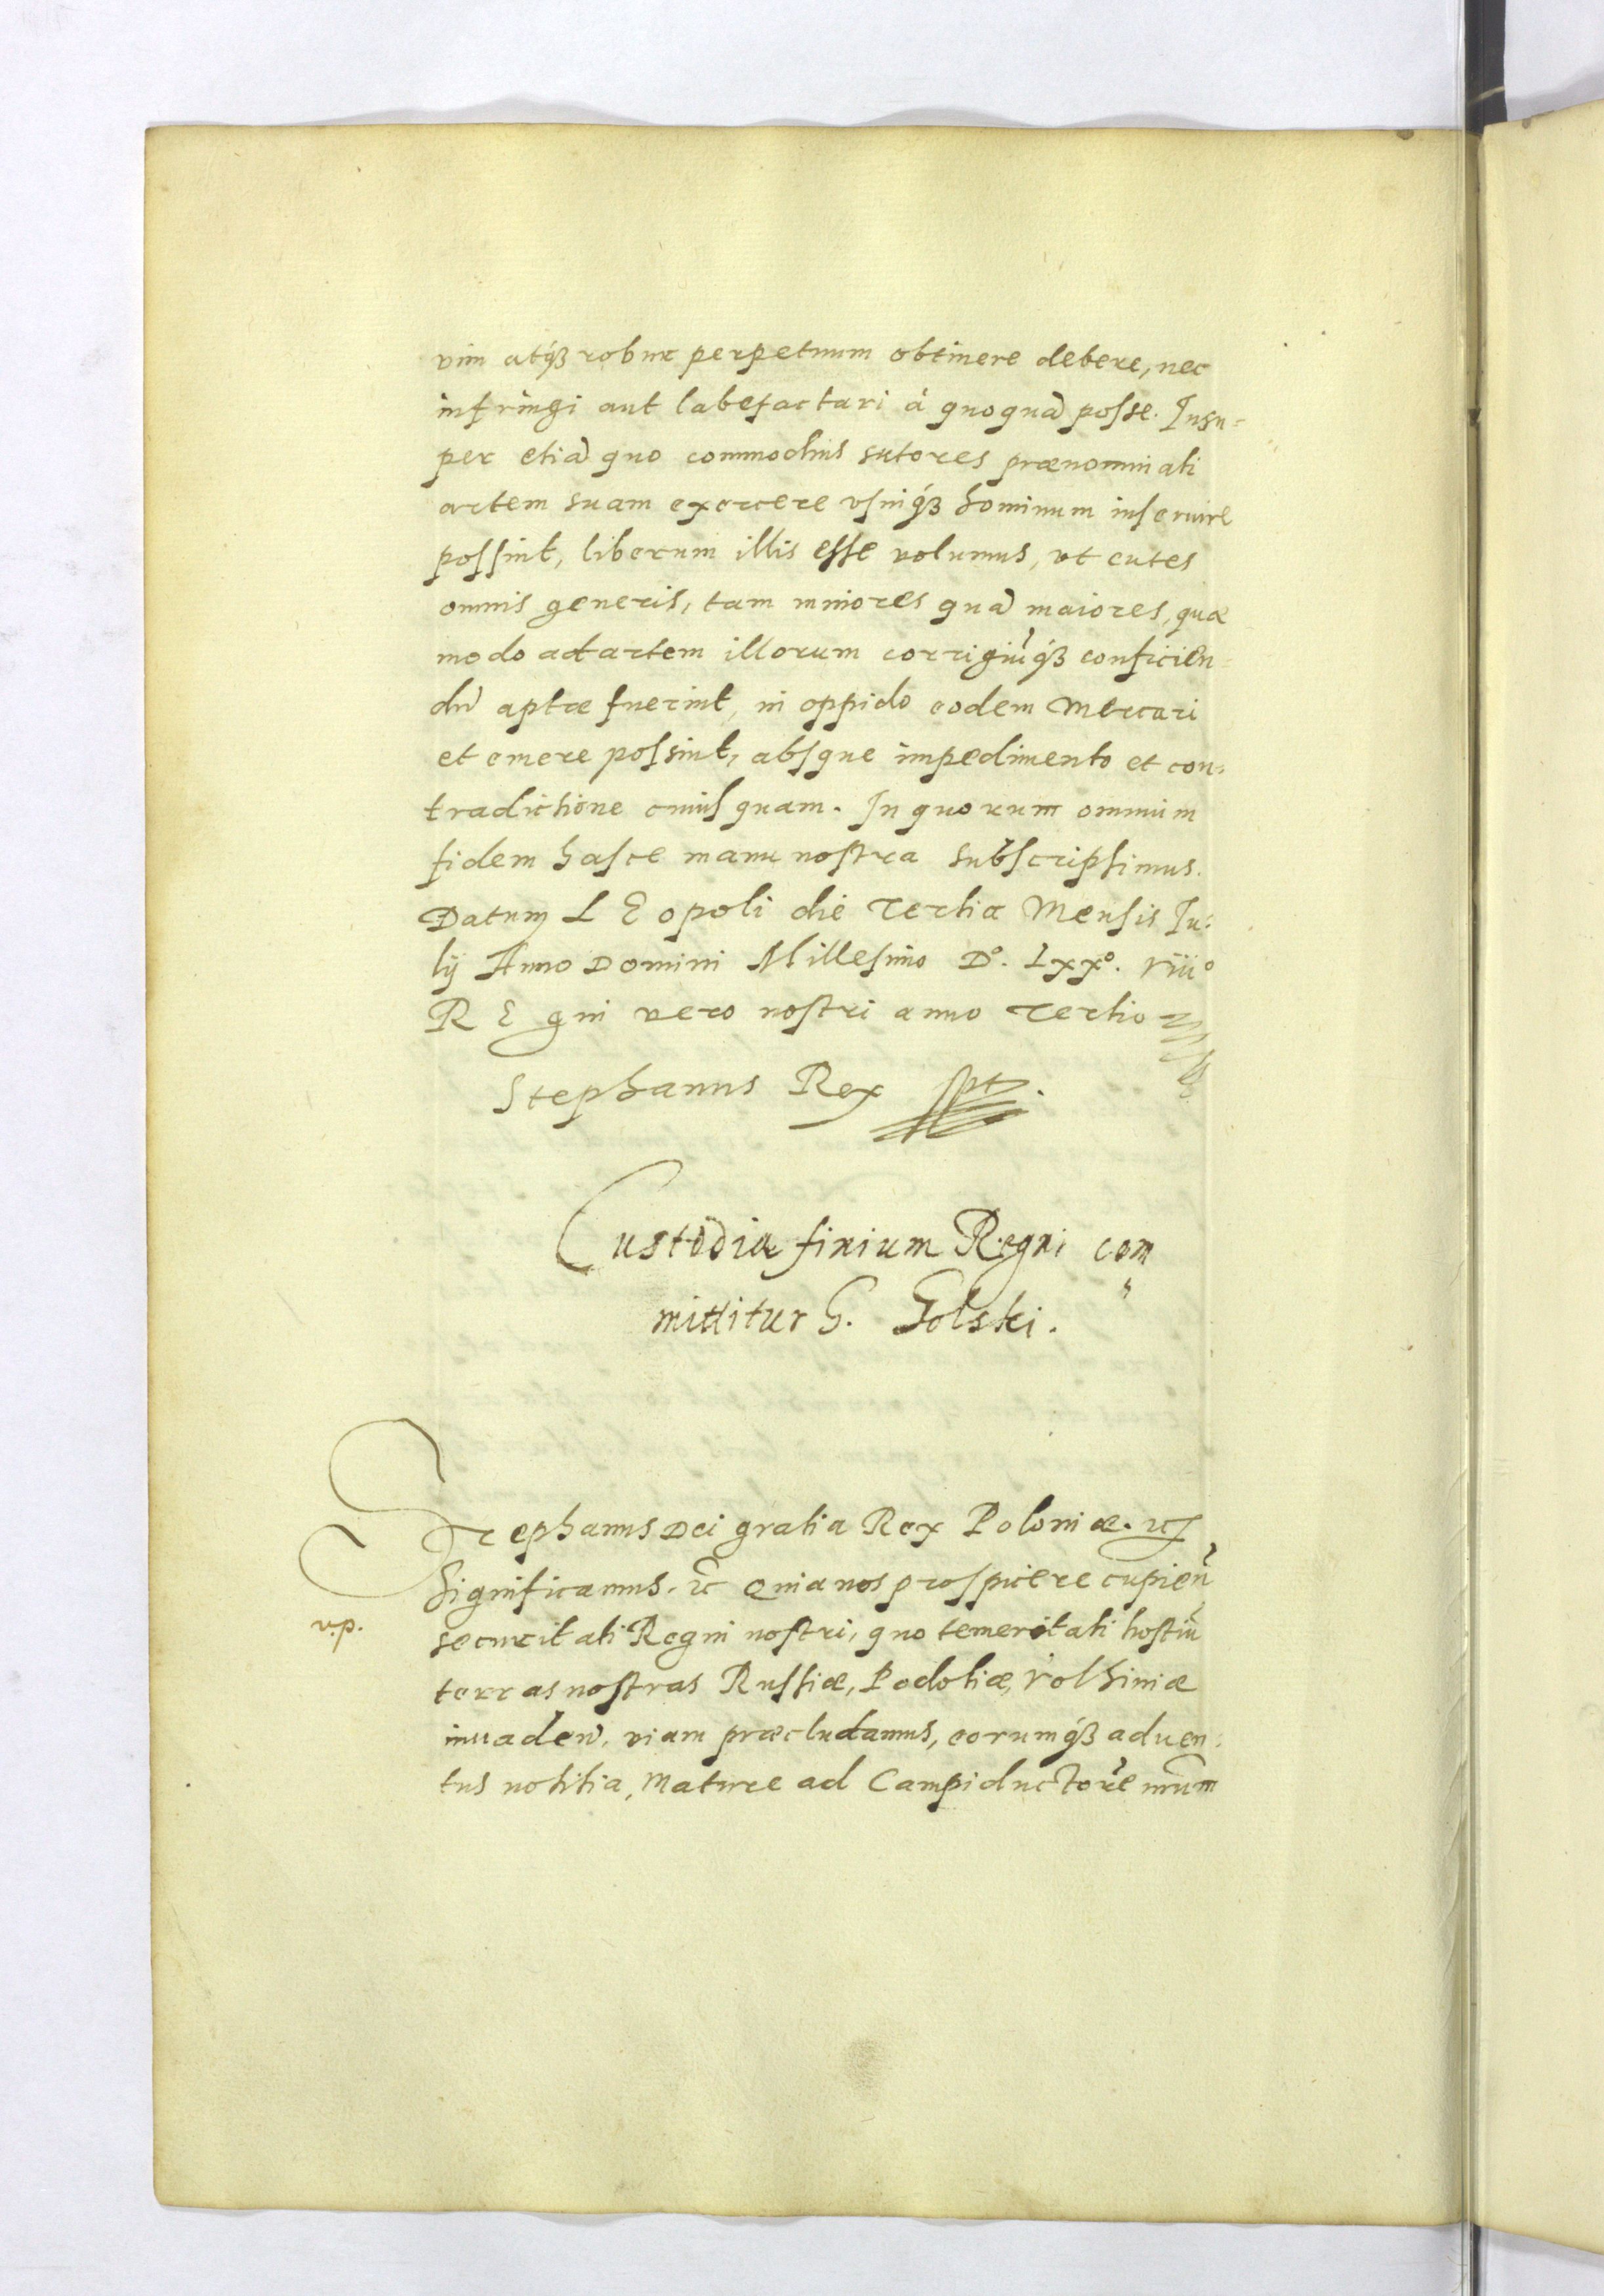 vim atq́ꝫ robur perpetuum obtinere debere, nec
infringi aut labefactari á quoquã posse. Insu=
per etiã quo commodius sutores prænominati
artem suam exercere usuiq́ꝫ hominum inseruire
possint, liberum illis esse volumus, vt cutes
omnis generis, tam minores quã maiores, quæ
modo ad artem illorum corrigiũq́ꝫ conficien=
dũ aptæ fuerint, in oppido eodem Mercari
et emere possint, absque impedimento et con=
tradictione cuiusquam. In quorum omnium
fidem hasce manu nostra subscripsimus.
Datum LEopoli die Tertia Mensis Iu=
lij Anno Domini Millesimo D°. Lxx°. viii°
REgni vero nostri anno Tertio
Stephanus Rex sst.
Custodia finium Regni com"
mittitur G. Golski.
Stephanus Dei gratia Rex Poloniæ. ꝛc
Significamus. ꝛc Quia nos prospicere cupieñ
v.p.
securitati Regni nostri, quo temeritati hostiũ
terras nostras Russiæ, Podoliæ, Volhiniæ
inuadeñ. viam præcludamus, eorumq́ꝫ aduen=
tus notitia, Mature ad Campiductorẽ nr̃um